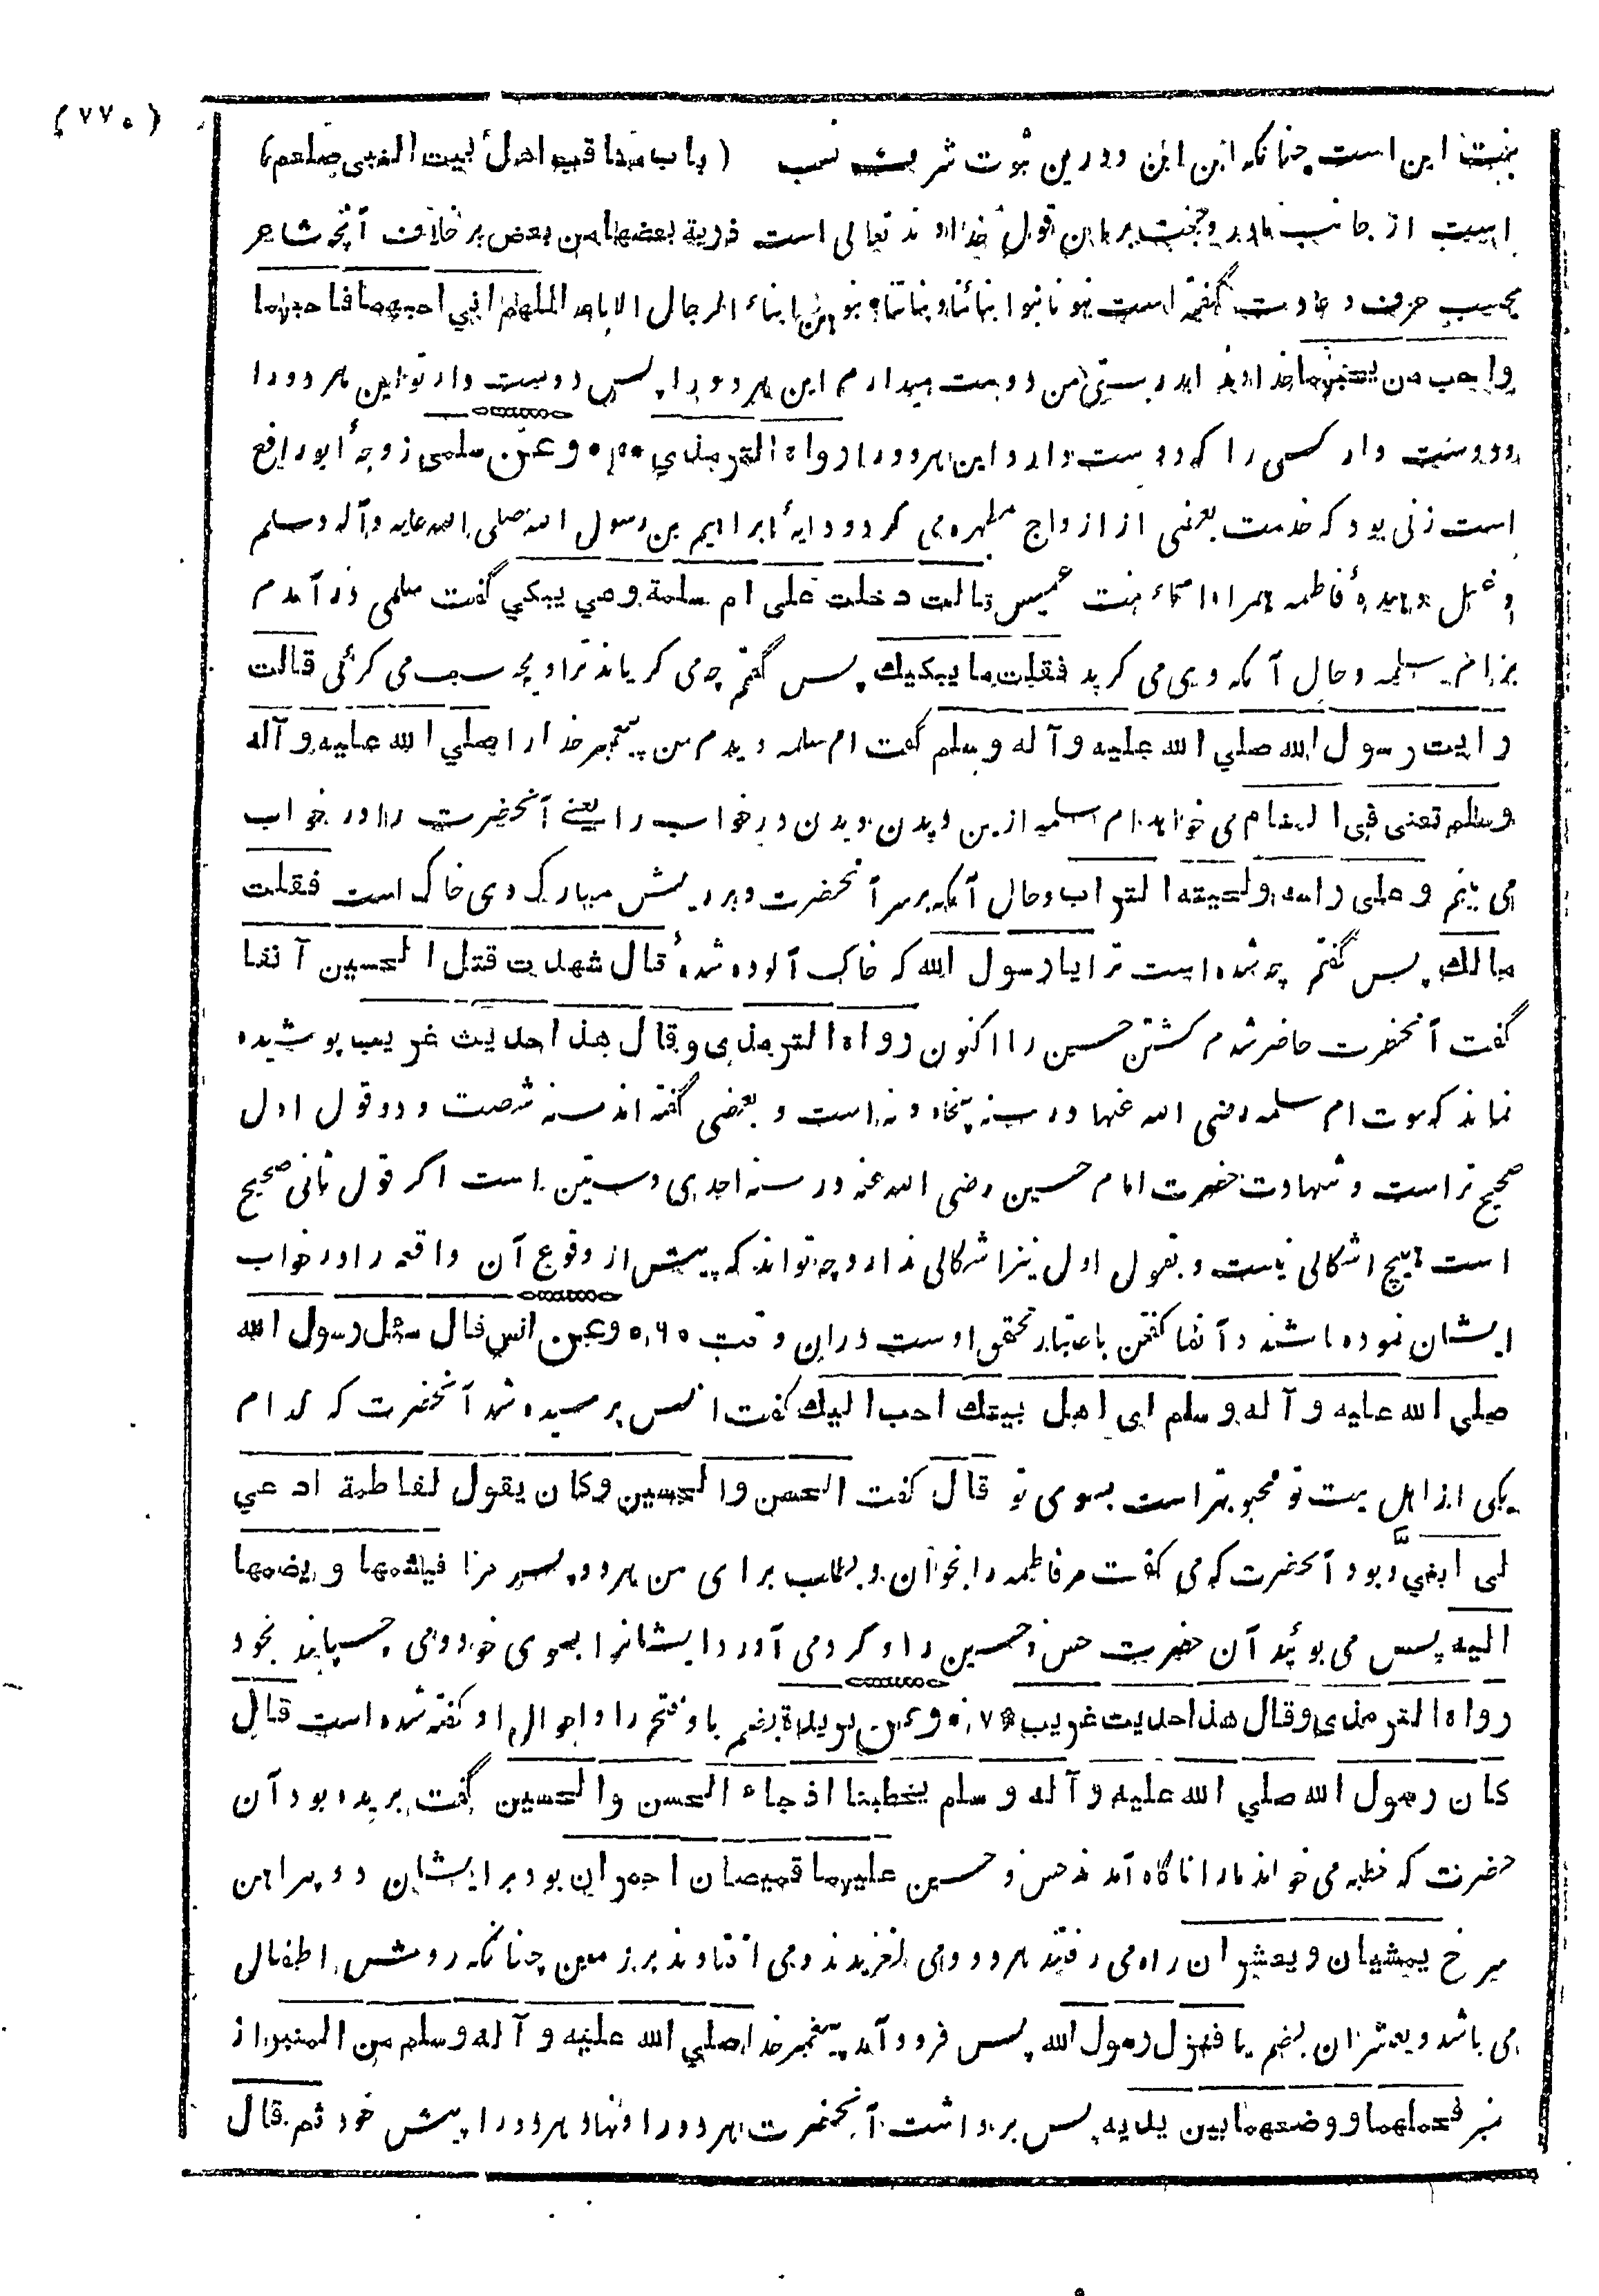 (٧٧٠)
بنت این است چنانکه ابن ابن و درین ثبوت شرف نسب (باب مناقب اهل بیت النبی صلعم)
است از جانب مادر و حجت بر این قول خداوند تعالی است ذریة بعضها من بعض بر خلاف آنچه شاعر
بحسب عرف و عادت گفته است بنونا بنوا ابنائنا وبناتنا بنوهن ابناء الرجال الاباعد اللهم اني احبهما فاحبهما
واحب من یحبهما خداوندا بدرستی من دوست میدارم این هر دو را پس دوست دار تو این هر دو را
و دوست دار کسی را که دوست دارد این هر دو را رواه الترمذي وعن سلمی زوجهٔ ابو رافع
است زنی بود که خدمت بعضی از ازواج مطهره می کرد و دایهٔ ابراهیم بن رسول الله صلی الله علیه وآله وسلم
و غسل دهیدهٔ فاطمه همراه اسماء بنت عمیس قالت دخلت علی ام سلمة وهي یبکي گفت سلمی در آمدم
بر ام سلمه و حال آنکه وی می گرید فقلت ما یبکیك پس گفتم چه می گریاند ترا و بچه سبب می گرئی قالت
رایت رسول الله صلي الله علیه وآله وسلم گفت ام سلمه دیدم من پیغمبر خدا را صلي الله علیه وآله
وسلم تعنی فی المنام می خواهد ام سلمه ازین دیدن دیدن در خواب را یعنے آنحضرت را در خواب
می بینم وعلی راسه ولحیته التراب و حال آنکه بر سر آنحضرت و بر ریش مبارک وی خاک است فقلت
مالك پس گفتم چه شده است ترا یا رسول الله که خاک آلوده شدهٔ قال شهدت قتل الحسین آنفا
گفت آنحضرت حاضر شدم کشتن حسین را اکنون رواه الترمذي وقال هذا حدیث غریب پوشیده
نماند که موت ام سلمه رضی الله عنها در سنه پنجاه و نه است و بعضی گفته اند سنه شصت و دو قول اول
صحیح تر است و شهادت حضرت امام حسین رضی الله عنه در سنه احدی وستین است اگر قول ثانی صحیح
است هیچ اشکالی نیست و بقول اول نیز اشکالی ندارد چه تواند که پیش از وقوع آن واقعه را در خواب
ایشان نموده باشند و آنفا گفتن باعتبار تحقق اوست دران وقت وعن انس قال سئل رسول الله
صلی الله علیه وآله وسلم ای اهل بیتك احب الیك گفت انس پرسیده شد آنحضرت که کدام
یکی از اهل بیت تو محبوبتر است بسوی تو قال گفت الحسن والحسین وکان یقول لفاطمة ادعي
لی ابنيَّ و بود آنحضرت که می گفت مر فاطمه را بخوان و بطلب برای من هر دو پسر مرا فیشمها ویضمها
الیه پس می بوئید آن حضرت حسن و حسین را و گرد می آورد ایشانرا بسوی خود و می چسپانید بخود
رواه الترمذی وقال هذا حدیث غریب وعن بریدة بضم با و فتح را و احوال او گفته شده است قال
کان رسول الله صلي الله علیه وآله وسلم یخطبنا اذ جاء الحسن والحسین گفت بریده بود آن
حضرت که خطبه می خواند مارا ناگاه آمدند حسن و حسین علیهما قمیصان احمران بود بر ایشان دو پیراهن
سرخ یمشیان ویعثران راه می رفتند هر دو و می لغزیدند و می افتادند بر زمین چنانکه روش اطفالی
می باشد و یعثران بضم یا فنزل رسول الله پس فرود آمد پیغمبر خدا صلي الله علیه وآله وسلم من المنبر از
منبر فحملهما ووضعهما بین یدیه پس برداشت آنحضرت هر دو را و نهاد هر دو را پیش خود ثم قال